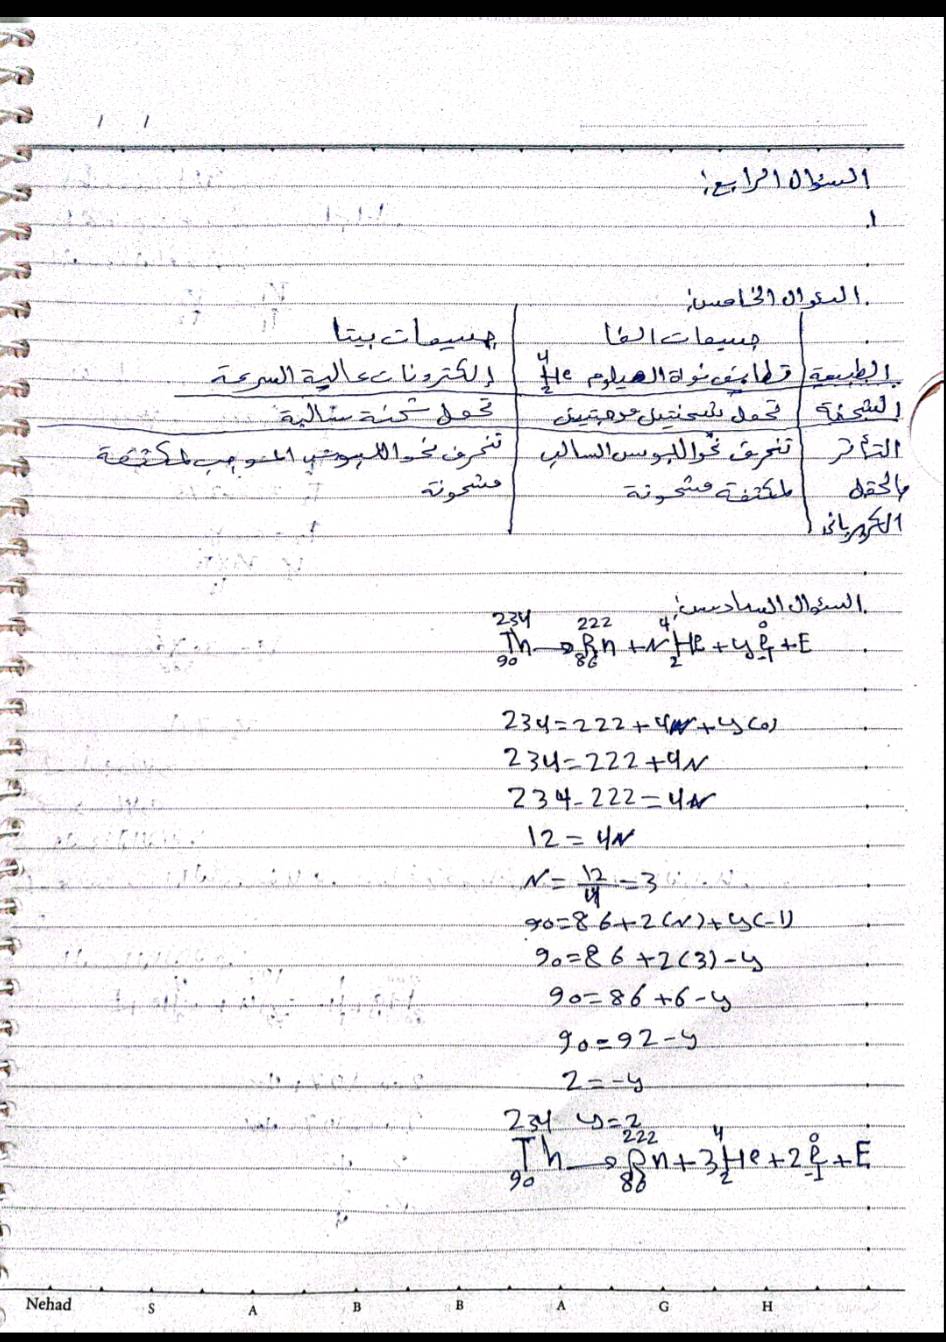 / /
السؤال الرابع:
1.
السؤال الخامس:
جسيمات الفا | جسيمات بيتا
الطبيعة | تطابق نواة الهيليوم ⁴₂He | إلكترونات عالية السرعة
الشحنة | تحمل شحنتين موجبتين | تحمل شحنة سالبة
التأثر | تنحرف نحو اللبوس السالب | تنحرف نحو اللبوس الموجب لمكثفة
بالحقل | لمكثفة مشحونة | مشحونة
الكهربائي
السؤال السادس:
²³⁴₉₀Th → ²²²₈₆Rn + N ⁴₂He + y ⁰₋₁e + E
234=222+4N+y(0)
234=222+4N
234-222=4N
12=4N
N=12/4=3
90=86+2(N)+y(-1)
90=86+2(3)-y
90=86+6-y
90=92-y
2=-y
y=2
²³⁴₉₀Th → ²²²₈₆Rn + 3 ⁴₂He + 2 ⁰₋₁e + E
Nehad S A B B A G H